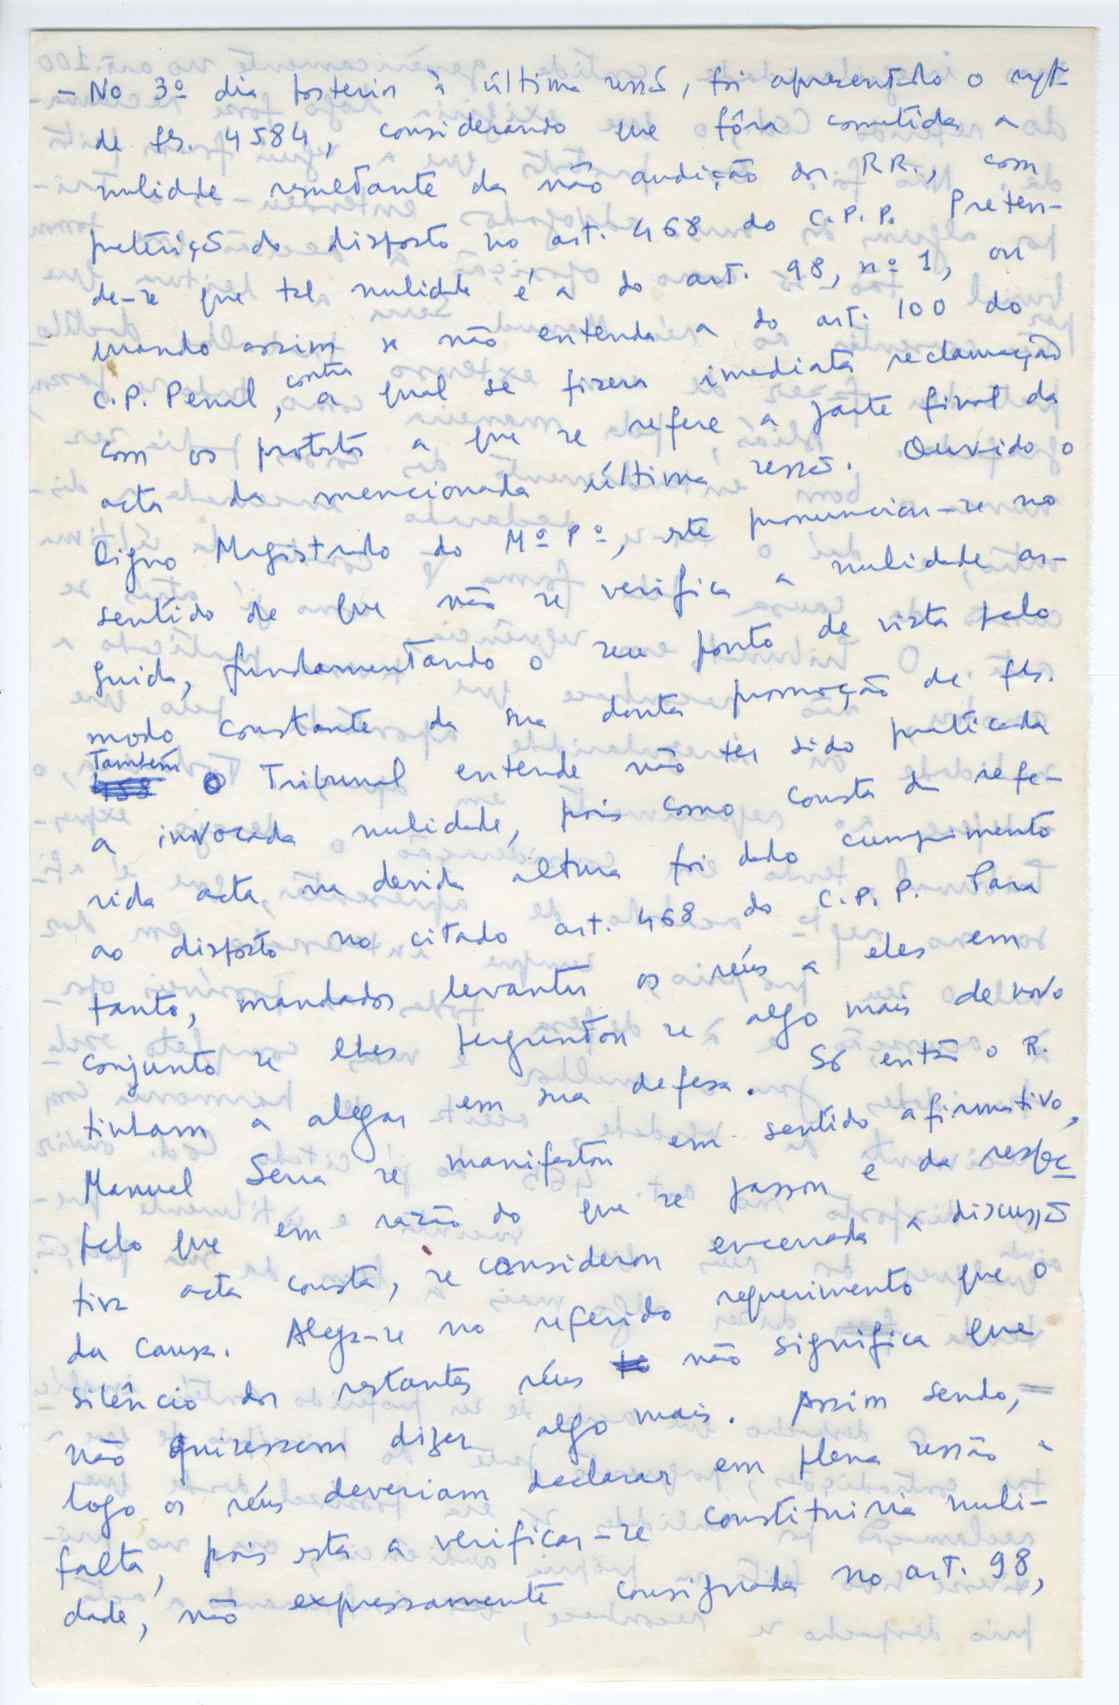 - No 3º dia posterior à última sessão, foi apresentado o reqtº
de fls. 4584, considerando que fôra cometida a
nulidade resultante da não audição dos RR., com
preterição do disposto no art. 468 do C.P.P. Preten-
de-se que tal nulidade é a do art. 98, nº 1, ou
quando assim se não entenda a do art. 100 do
C.P. Penal, contra a qual se fizera imediata reclamação
com os protestos a que se refere a parte final da
acta da mencionada última sessão. Ouvido o
Digno Magistrado do Mº Pº, este pronunciou-se no
sentido de que não se verifica a nulidade ar-
guida, fundamentando o seu ponto de vista pelo
modo constante da sua douta promoção de fls.
Também o Tribunal entende não ter sido praticada
a invocada nulidade, pois como consta da refe-
rida acta na devida altura foi dado cumprimento
ao disposto no citado art. 468 do C.P.P. Para
tanto, mandados levantar os réus a eles em
conjunto se lhes perguntou se algo mais de novo
tinham a alegar em sua defesa. Só então o R.
Manuel Serra se manifestou em sentido afirmativo,
pelo que em razão do que se passou e da respec
tiva acta consta, se considerou encerrada a discussão
da causa. Alega-se no referido requerimento que o
silêncio dos restantes réus não significa que
não quisessem dizer algo mais. Assim sendo,
logo os réus deveriam declarar em plena sessão a
falta, pois esta a verificar-se constituiria nuli-
dade, não expressamente consignada no art. 98,